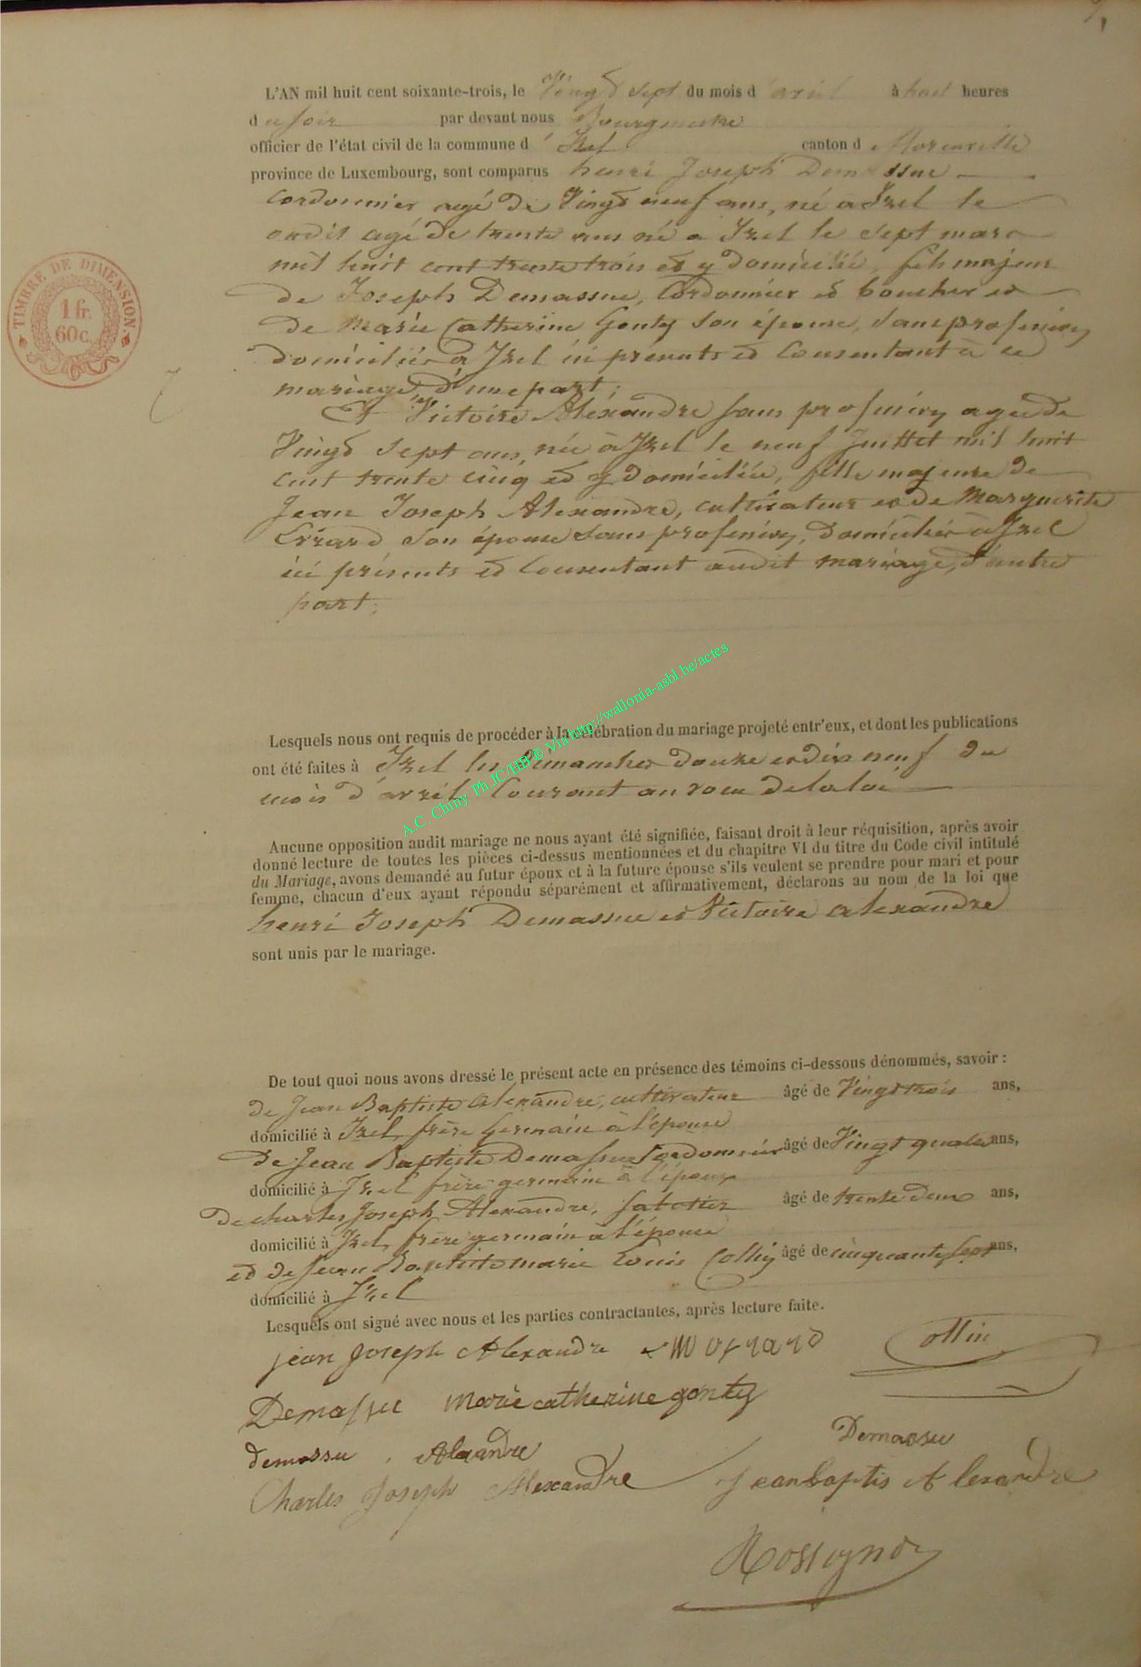 L'AN mil huit cent soixante-trois, le Vingt sept du mois d'avril à huit heures
du soir par devant nous Bourgmestre
officier de l'état civil de la commune d'Izel canton de Florenville
province de Luxembourg, sont comparus henri Joseph Demassue
Cordonnier agé de Vingt neuf ans, né à Izel le
ondit agé de trente ans né a Izel le sept mars
mil huit cent trente trois et y domicilié, fils majeur
de Joseph Demassue, Cordonnier et boucher et
de Marie Catherine Gonty son épouse, sans profession,
domiciliés à Izel ici présents et consentant à ce
mariage, d'une part;
Et Victoire Alexandre sans profession agée de
Vingt sept ans, née à Izel le neuf Juillet mil huit
cent trente cinq et y domiciliée, fille majeure de
Jean Joseph Alexandre, cultivateur et de Marguerite
Evrard son épouse sans profession, domiciliés à Izel
ici présents et consentant audit mariage, d'autre
part;
Lesquels nous ont requis de procéder à la célébration du mariage projeté entr'eux, et dont les publications
ont été faites à Izel les dimanches douze et dix neuf du
mois d'avril courant au vœu de la loi
A.C. Chiny Ph.JC/HB © Via http://wallonia-asbl.be/actes
Aucune opposition audit mariage ne nous ayant été signifiée, faisant droit à leur réquisition, après avoir
donné lecture de toutes les pièces ci-dessus mentionnées et du chapitre VI du titre du Code civil intitulé
du Mariage, avons demandé au futur époux et à la future épouse s'ils veulent se prendre pour mari et pour
femme, chacun d'eux ayant répondu séparément et affirmativement, déclarons au nom de la loi que
henri Joseph Demassue et Victoire alexandre
sont unis par le mariage.
De tout quoi nous avons dressé le présent acte en présence des témoins ci-dessous dénommés, savoir :
de Jean Baptiste Alexandre, cultivateur âgé de Vingt trois ans,
domicilié à Izel, frère Germain à l'épouse
de Jean Baptiste Demassue Cordonnier âgé de Vingt quatre ans,
domicilié à Izel frère germain à l'époux
de charles Joseph Alexandre, sabotier âgé de trente deux ans,
domicilié à Izel, frère germain à l'épouse
et de Jean Baptiste marie Louis Collin âgé de cinquante sept ans,
domicilié à Izel
Lesquels ont signé avec nous et les parties contractantes, après lecture faite.
jean joseph Alexandre Collin
Demassue marie catherine gonty
demassu Alexandre Demassu
Charles Joseph Alexandre jean baptis Alexandre
Rossignon
TIMBRE DE DIMENSION.
1 fr.
60c.